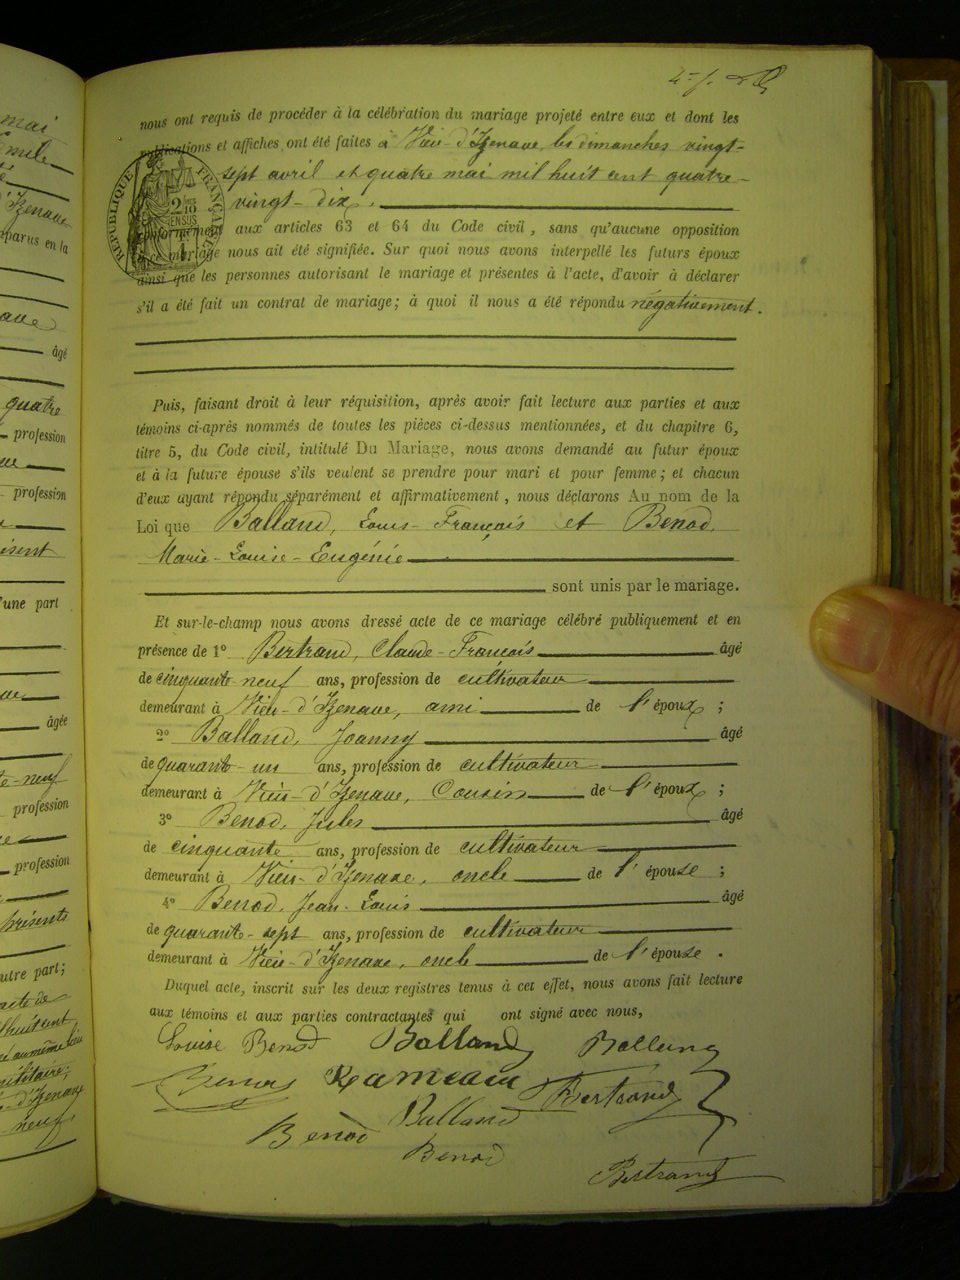 nous ont requis de procéder à la célébration du mariage projeté entre eux et dont les
publications et affiches ont été faites à Vieu-d'Izenave, les dimanches vingt-
sept avril et quatre mai mil huit cent quatre-
vingt-dix.
RÉPUBLIQUE FRANÇAISE
conformément aux articles 63 et 64 du Code civil, sans qu'aucune opposition
à ce mariage nous ait été signifiée. Sur quoi nous avons interpellé les futurs époux
ainsi que les personnes autorisant le mariage et présentes à l'acte, d'avoir à déclarer
s'il a été fait un contrat de mariage; à quoi il nous a été répondu négativement.
Puis, faisant droit à leur réquisition, après avoir fait lecture aux parties et aux
témoins ci-après nommés de toutes les pièces ci-dessus mentionnées, et du chapitre 6,
titre 5, du Code civil, intitulé Du Mariage, nous avons demandé au futur époux
et à la future épouse s'ils veulent se prendre pour mari et pour femme; et chacun
d'eux ayant répondu séparément et affirmativement, nous déclarons Au nom de la
Loi que Balland, Louis-François et Benod,
Marie-Louise-Eugénie
sont unis par le mariage.
Et sur-le-champ nous avons dressé acte de ce mariage célébré publiquement et en
présence de 1º Bertrand, Claude-François âgé
de cinquante-neuf ans, profession de cultivateur
demeurant à Vieu-d'Izenave, ami de l'époux;
2º Balland, Joanny âgé
de quarante-un ans, profession de cultivateur
demeurant à Vieu-d'Izenave, Cousin de l'époux;
3º Benod, Jules âgé
de cinquante ans, profession de cultivateur
demeurant à Vieu-d'Izenave, oncle de l'épouse;
4º Benod, Jean-Louis âgé
de quarante-sept ans, profession de cultivateur
demeurant à Vieu-d'Izenave, oncle de l'épouse.
Duquel acte, inscrit sur les deux registres tenus à cet effet, nous avons fait lecture
aux témoins et aux parties contractantes qui ont signé avec nous,
Louise Benod Balland Balland
Benod Rameau Bertrand
Benod Balland
Benod
Bertrand
mai
d'Izenave
comparus en la
âgé
quatre
profession
profession
d'une part
âgée
profession
profession
présents
autre part;
acte de
militaire;
d'Izenave
neuf